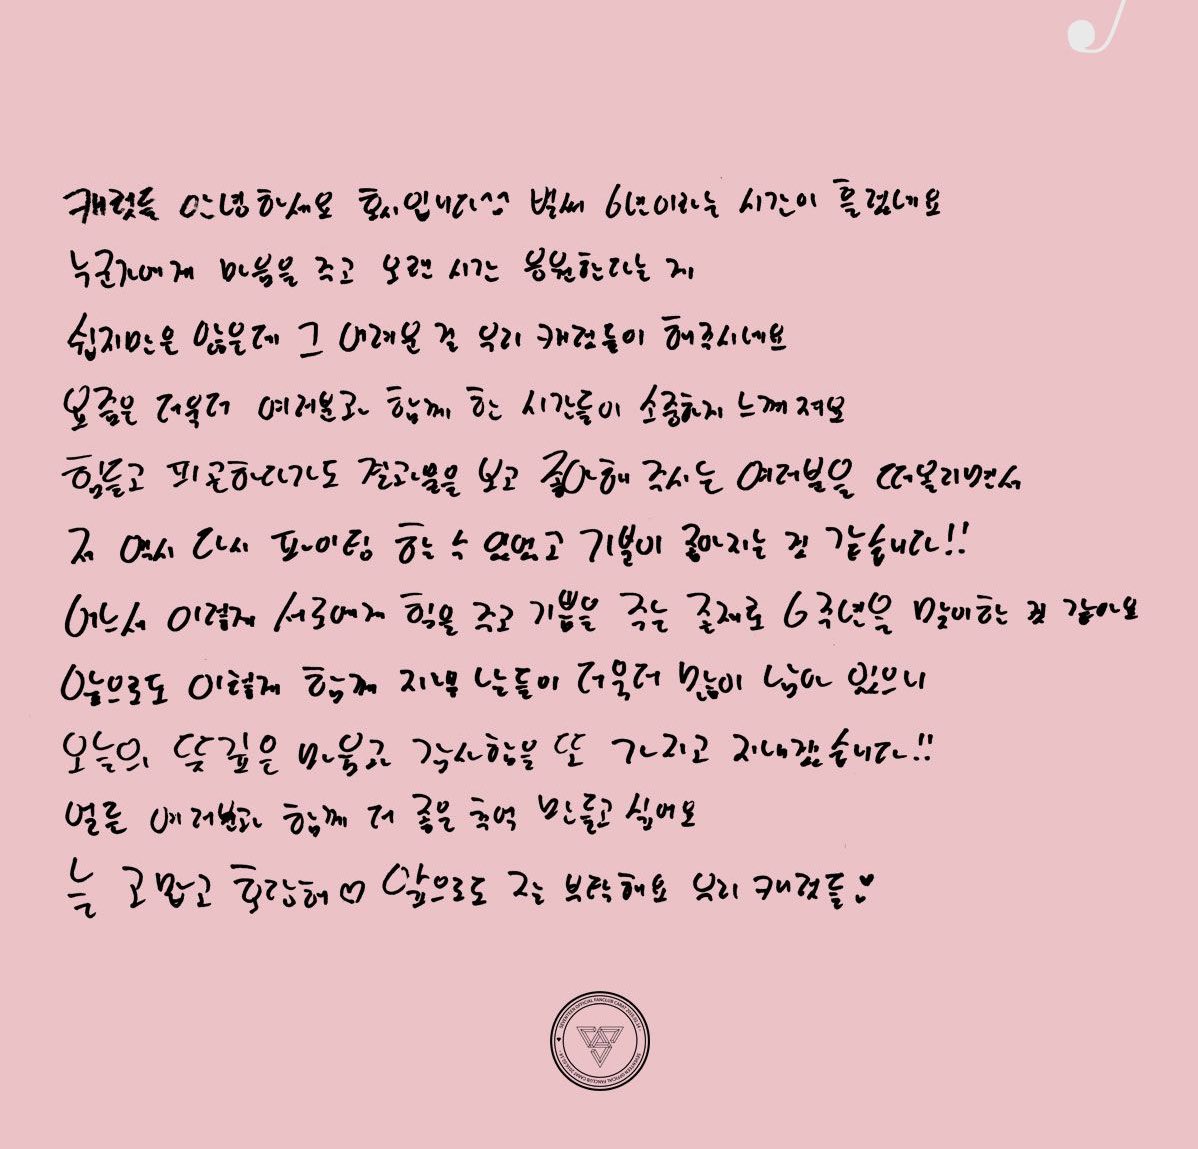 캐럿들 안녕하세요 호시입니다^^ 벌써 6년이라는 시간이 흘렀네요
누군가에게 마음을 주고 오랜 시간 응원한다는 게
쉽지만은 않을텐데 그 어려운 걸 우리 캐럿들이 해주시네요
요즘은 더욱더 여러분과 함께 한 시간들이 소중하게 느껴져요
힘들고 피곤하다가도 결과물을 보고 좋아해 주시는 여러분을 떠올리면서
저 역시 다시 파이팅 할 수 있었고 기분이 좋아지는 것 같습니다!!
어느새 이렇게 서로에게 힘을 주고 기쁨을 주는 존재로 6주년을 맞이하는 것 같아요
앞으로도 이렇게 함께 지낼 날들이 더욱더 많이 남아 있으니
오늘의 뜻깊은 마음과 감사함을 또 가지고 지내겠습니다!!
얼른 여러분과 함께 더 좋은 추억 만들고 싶어요
늘 고맙고 사랑해♡ 앞으로도 잘 부탁해요 우리 캐럿들♥
SEVENTEEN OFFICIAL FANCLUB CARAT